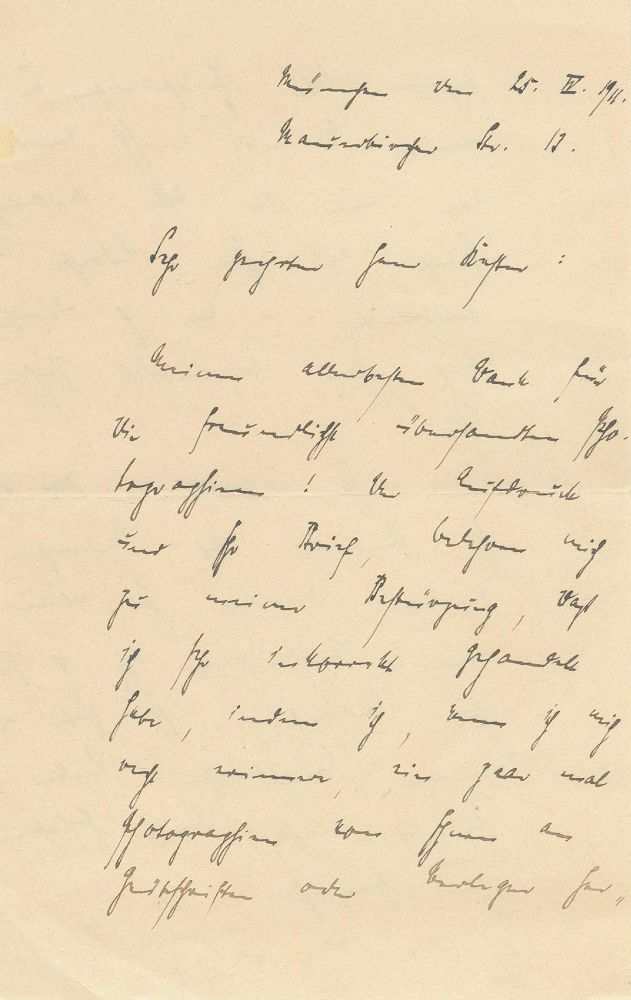 München den 25. IV. 1911.
Mauerkircher Str. 13.
Sehr geehrter Herr
Meinen allerbesten Dank für
die freundlichst übersandten Pho-
tographien! Der Aufdruck
und Ihr Brief, belehren mich
zu meiner Bestürzung, daß
ich sehr inkorrekt gehandelt
habe, indem ich, wenn ich mich
recht erinnere, ein paar mal
Photographien von Ihnen an
Zeitschriften oder Verleger her-